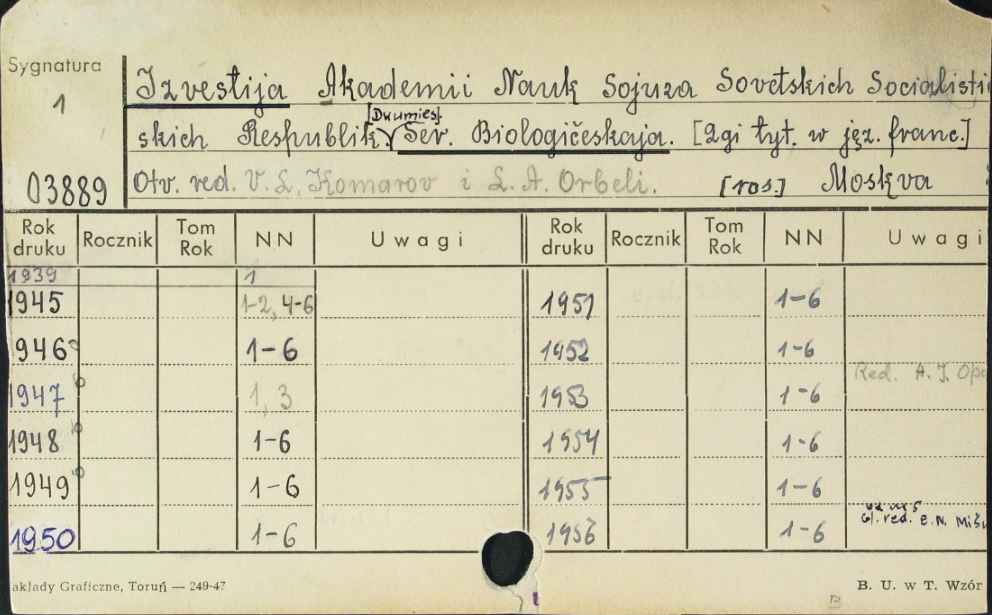 Sygnatura
1
03889
Izvestija Akademii Nauk Sojuza Sovetskich Socialisti
skich Respublik. [Dwumies.] Ser. Biologičeskaja. [2gi tyt. w jęz. franc.]
Otv. red. V. L. Komarov i L. A. Orbeli. [ros.] Moskva
Rok druku Rocznik Tom Rok NN Uwagi Rok druku Rocznik Tom Rok NN Uwagi
1939 1
1945 1-2, 4-6 1951 1-6
946 1-6 1952 1-6
Red. A. I. Opa
1947 1, 3 1953 1-6
1948 1-6 1954 1-6
1949 1-6 1955 1-6
Gl. red. E. N. Mišu
1950 1-6 1956 1-6
akłady Graficzne, Toruń — 249-47 B. U. w T. Wzór
B